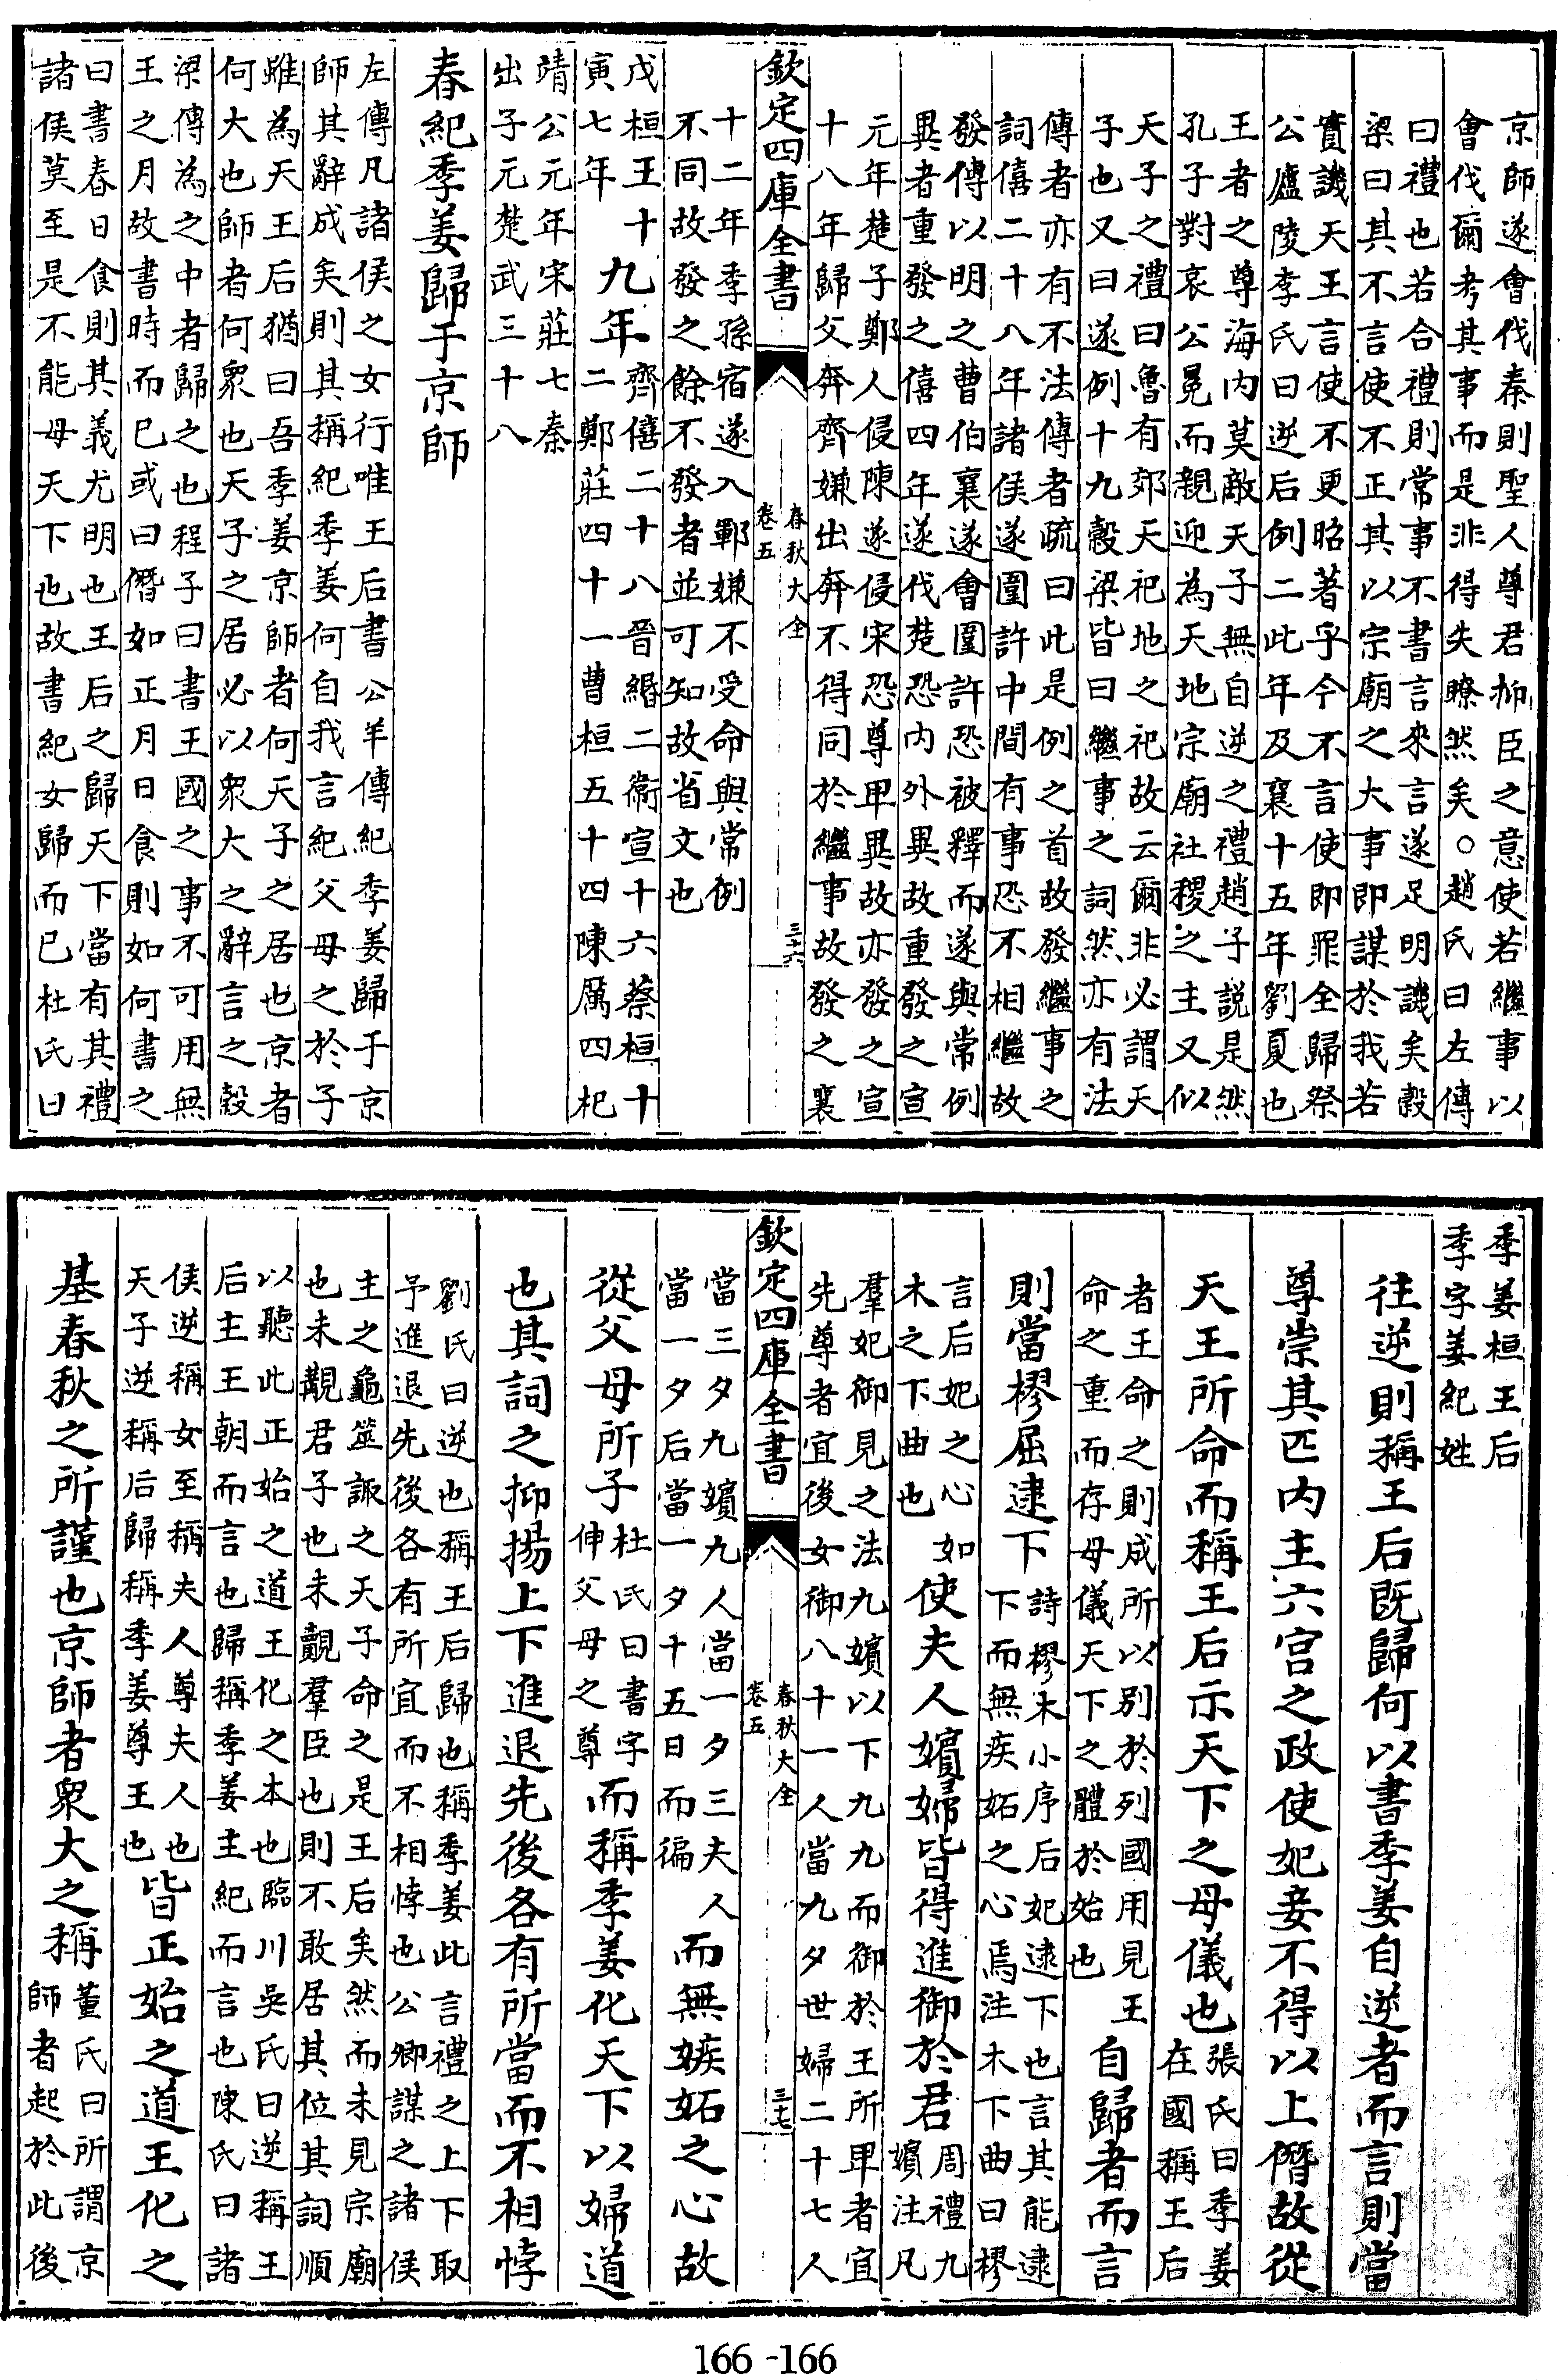 京師遂會伐秦則聖人尊君抑臣之意使若繼事以
會伐爾考其事而是非得失瞭然矣○趙氏曰左傳
曰禮也若合禮則常事不書言來言遂足明譏矣穀
梁曰其不言使不正其以宗廟之大事即謀於我若
實譏天王言使不更昭著乎今不言使即罪全歸祭
公廬陵李氏曰逆后例二此年及襄十五年劉夏也
王者之尊海内莫敵天子無自逆之禮趙子説是然
孔子對哀公冕而親迎為天地宗廟社稷之主又似
天子之禮曰魯有郊天祀地之祀故云爾非必謂天
子也又曰遂例十九穀梁皆曰繼事之詞然亦有法
傳者亦有不法傳者疏曰此是例之首故發繼事之
詞僖二十八年諸侯遂圍許中間有事恐不相繼故
發傳以明之曹伯襄遂會圍許恐被釋而遂與常例
異者重發之僖四年遂伐楚恐内外異故重發之宣
元年楚子鄭人侵陳遂侵宋恐尊卑異故亦發之宣
十八年歸父奔齊嫌出奔不得同於繼事故發之襄
欽定四庫全書
春秋大全
卷五
三十六
十二年季孫宿遂入鄆嫌不受命與常例
不同故發之餘不發者並可知故省文也
戊桓王十九年齊僖二十八晉緡二衞宣十六蔡桓十
寅七年二鄭莊四十一曹桓五十四陳厲四杞
靖公元年宋莊七秦
出子元楚武三十八
春紀季姜歸于京師
左傳凡諸侯之女行唯王后書公羊傳紀季姜歸于京
師其辭成矣則其稱紀季姜何自我言紀父母之於子
雖為天王后猶曰吾季姜京師者何天子之居也京者
何大也師者何眾也天子之居必以眾大之辭言之穀
梁傳為之中者歸之也程子曰書王國之事不可用無
王之月故書時而已或曰僭如正月日食則如何書之
曰書春日食則其義尤明也王后之歸天下當有其禮
諸侯莫至是不能母天下也故書紀女歸而已杜氏曰
季姜桓王后
季字姜紀姓
往逆則稱王后既歸何以書季姜自逆者而言則當
尊崇其匹内主六宫之政使妃妾不得以上僭故從
天王所命而稱王后示天下之母儀也張氏曰季姜
在國稱王后
者王命之則成所以别於列國用見王
命之重而存母儀天下之體於始也自歸者而言
則當樛屈逮下詩樛木小序后妃逮下也言其能逮
下而無疾妬之心焉注木下曲曰樛
言后妃之心如
木之下曲也使夫人嬪婦皆得進御於君周禮九
嬪注凡
羣妃御見之法九嬪以下九九而御於王所卑者宜
先尊者宜後女御八十一人當九夕世婦二十七人
欽定四庫全書
春秋大全
卷五
三十七
當三夕九嬪九人當一夕三夫人
當一夕后當一夕十五日而徧而無嫉妬之心故
從父母所子杜氏曰書字
伸父母之尊而稱季姜化天下以婦道
也其詞之抑揚上下進退先後各有所當而不相悖
劉氏曰逆也稱王后歸也稱季姜此言禮之上下取
予進退先後各有所宜而不相悖也公卿謀之諸侯
主之龜筮諏之天子命之是王后矣然而未見宗廟
也未覯君子也未覿羣臣也則不敢居其位其詞順
以聽此正始之道王化之本也臨川吳氏曰逆稱王
后主王朝而言也歸稱季姜主紀而言也陳氏曰諸
侯逆稱女至稱夫人尊夫人也
天子逆稱后歸稱季姜尊王也皆正始之道王化之
基春秋之所謹也京師者衆大之稱董氏曰所謂京
師者起於此後
166-166